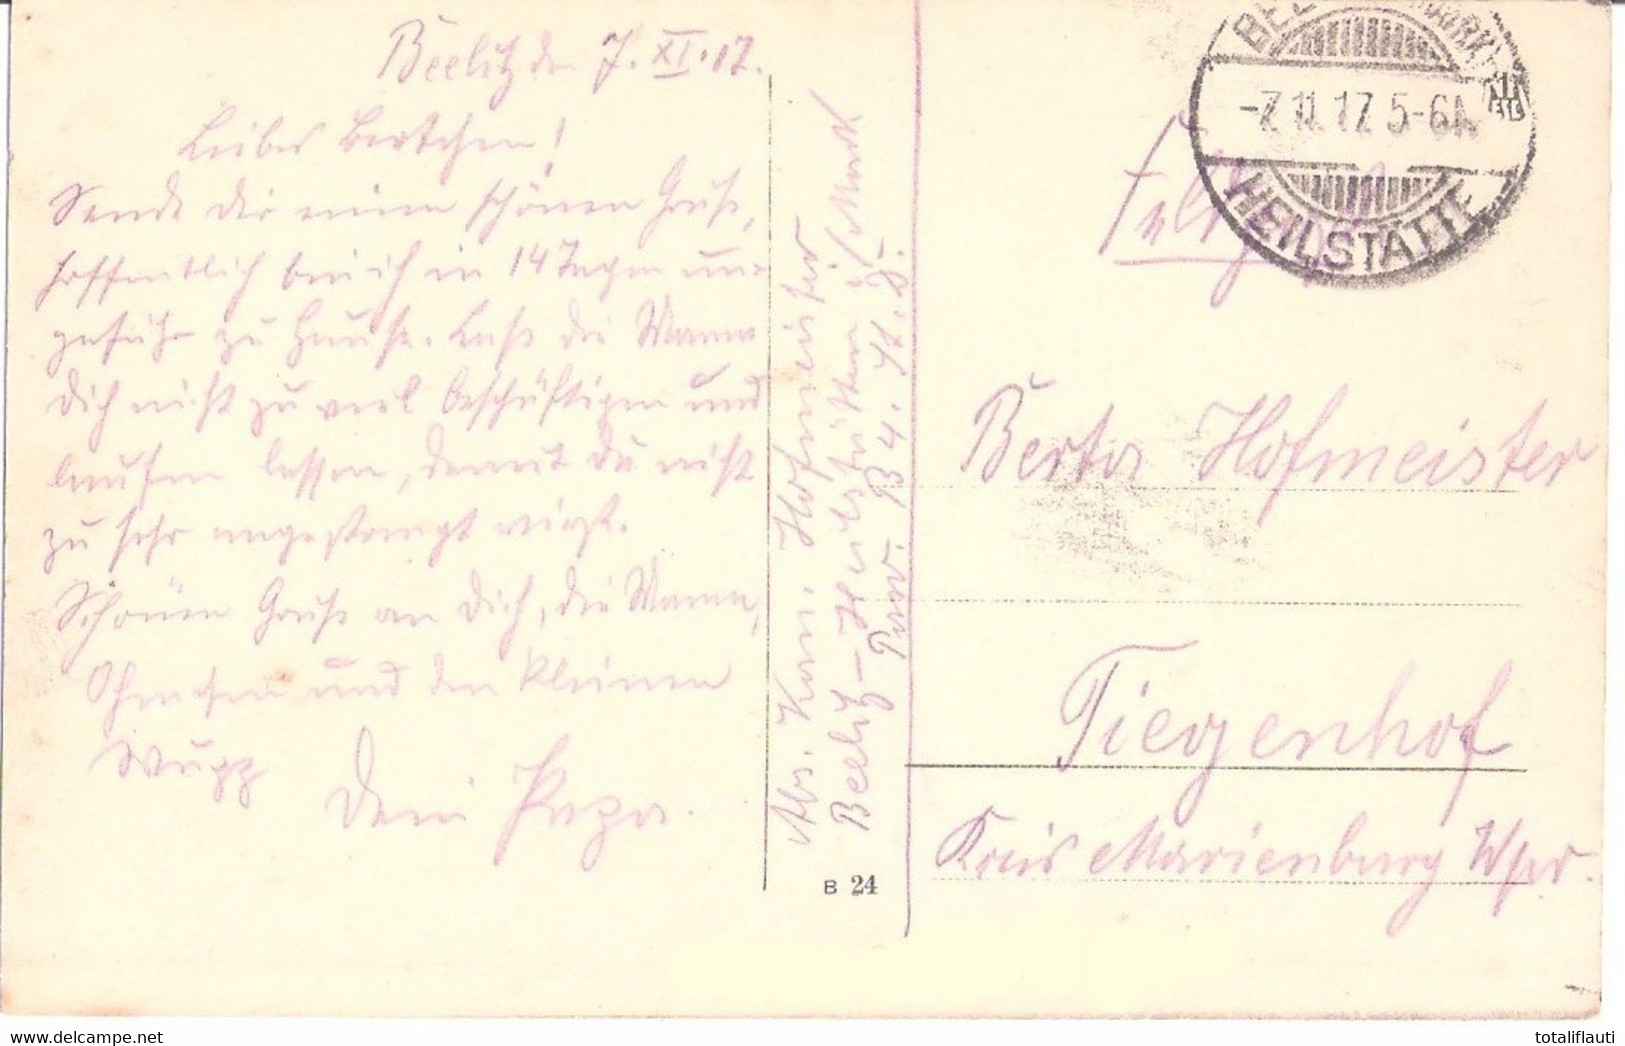 Beelitz den 7. XI. 17.
Liebes Bertchen!
Sende dir einen schönen Gruß,
hoffentlich bin ich in 14 Tagen un-
gefähr zu Hause. Laß die Mama
dich nicht zu viel beschäftigen und
laufen lassen, damit du nicht
zu sehr angestrengt wirst.
Schönen Gruß an dich, die Mama,
und den kleinen
Dein Papa.
Abs. Kan. Hofmeister
Beelitz-Heilstätten /Mark
B 4.
B 24
BEELITZ (MARK)
-7.11.17. 5-6N
HEILSTÄTTE
Feldpost
Berta Hofmeister
Tiegenhof
Kreis Marienburg Wpr.
www.delcampe.net
totaliflauti